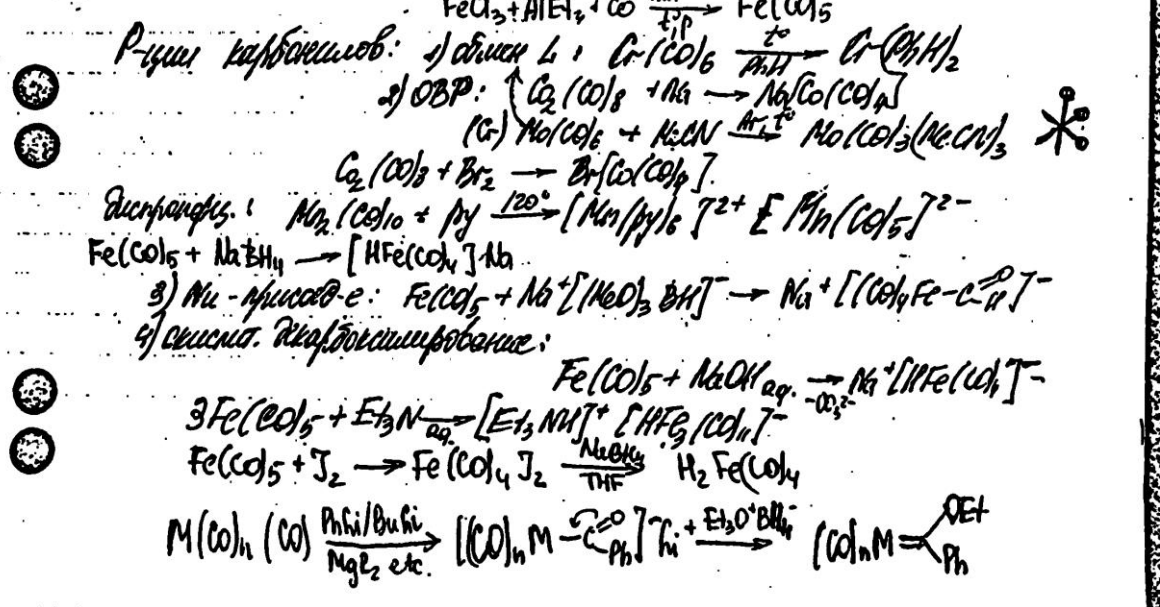 FeCl₃ + AlEt₃ + CO → (t°, p) Fe(CO)₅
Р-ции карбонилов: 1) обмен L: Cr(CO)₆ —t°/PhH→ Cr(PhH)₂
2) ОВР: Co₂(CO)₈ + Na → Na[Co(CO)₄]
(Cr) Mo(CO)₆ + MeCN —Ar, t°→ Mo(CO)₃(MeCN)₃
Co₂(CO)₈ + Br₂ → Br[Co(CO)₄].
Диспропорц.: Mn₂(CO)₁₀ + py —120°→ [Mn(py)₆]²⁺ [Mn(CO)₅]²⁻
Fe(CO)₅ + NaBH₄ → [HFe(CO)₄]Na
3) Nu-присоед-е: Fe(CO)₅ + Na⁺[(MeO)₃BH]⁻ → Na⁺[(CO)₄Fe-C(=O)H]⁻
4) окислит. декарбоксилирование:
Fe(CO)₅ + NaOH aq. —-CO₃²⁻→ Na⁺[HFe(CO)₄]⁻
3Fe(CO)₅ + Et₃N —aq.→ [Et₃NH]⁺ [HFe₃(CO)₁₁]⁻
Fe(CO)₅ + J₂ → Fe(CO)₄J₂ —NaBH₄/THF→ H₂Fe(CO)₄
M(CO)ₙ(CO) —PhLi/BuLi/MgR₂ etc.→ [(CO)ₙM-C(=O)Ph]⁻Li⁺ —Et₃O⁺BH₄⁻→ (CO)ₙM=(OEt)Ph